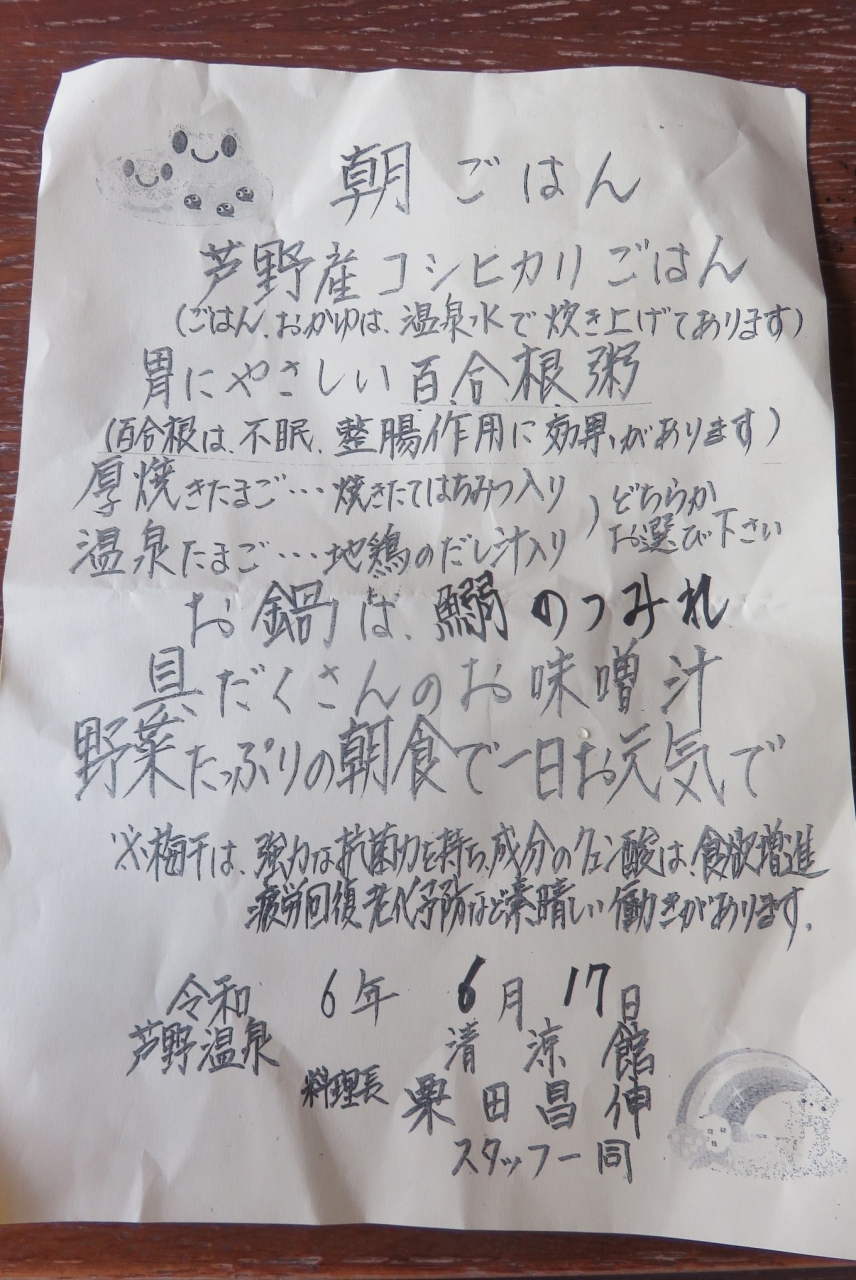 朝ごはん
芦野産コシヒカリごはん
(ごはん、おかゆは、温泉水で炊き上げてあります)
胃にやさしい百合根粥
(百合根は、不眠、整腸作用に効果があります)
厚焼きたまご…焼きたてはちみつ入り
温泉たまご…地鶏のだし汁入り
)どちらか
お選び下さい
お鍋は、鰯のつみれ
具だくさんのお味噌汁
野菜たっぷりの朝食で一日お元気で
※梅干は、強力な抗菌力を持ち、成分のクエン酸は、食欲増進
疲労回復老化予防など素晴しい働きがあります。
令和 6年 6月 17日
芦野温泉 清涼館
料理長 栗田昌伸
スタッフ一同